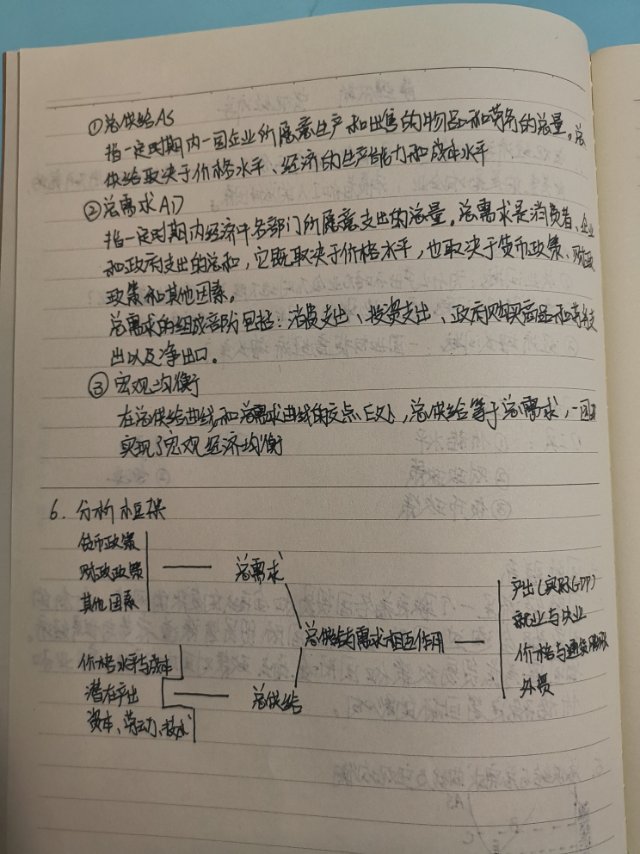 ①总供给AS
指一定时期内一国企业所愿意生产和出售的物品和劳务的总量。总
供给取决于价格水平、经济的生产能力和成本水平
②总需求AD
指一定时期内经济中各部门所愿意支出的总量。总需求是消费者、企业
和政府支出的总和，它既取决于价格水平，也取决于货币政策、财政
政策和其他因素。
总需求的组成部分包括：消费支出、投资支出、政府购买商品和劳务支
出以及净出口。
③宏观均衡
在总供给曲线和总需求曲线的交点E处，总供给等于总需求，一国
实现了宏观经济均衡
6. 分析框架
货币政策
财政政策
其他因素
总需求
总供给与需求相互作用
产出(实际GDP)
就业与失业
价格与通货膨胀
外贸
价格水平与成本
潜在产出
资本、劳动力、技术
总供给